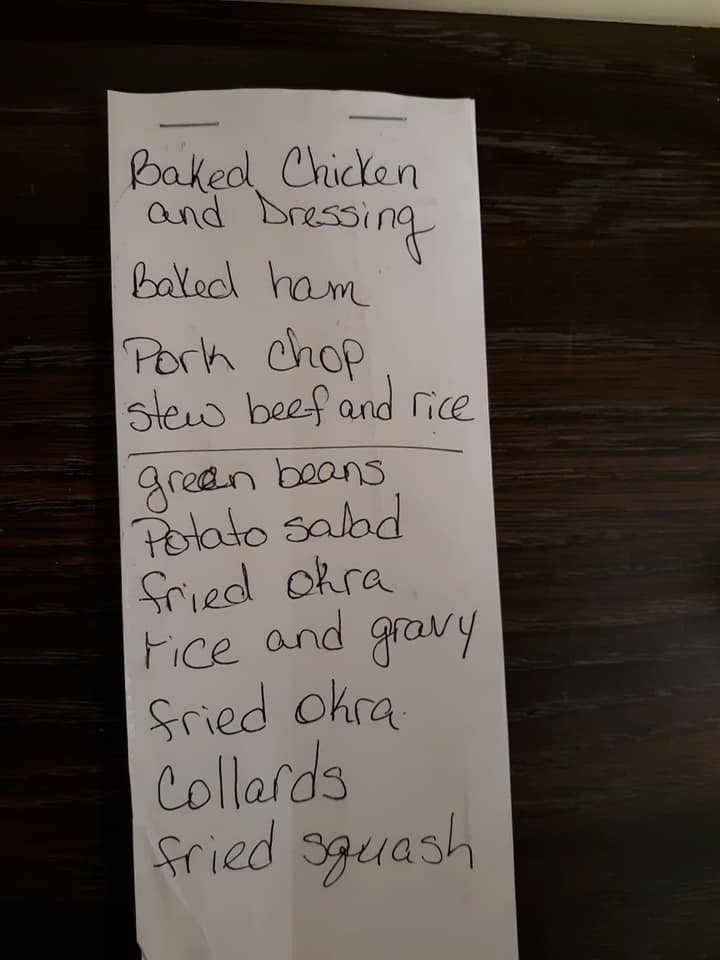 Baked Chicken
and Dressing
Baked ham
Pork chop
stew beef and rice
green beans
Potato salad
fried okra
rice and gravy
fried okra
Collards
fried squash